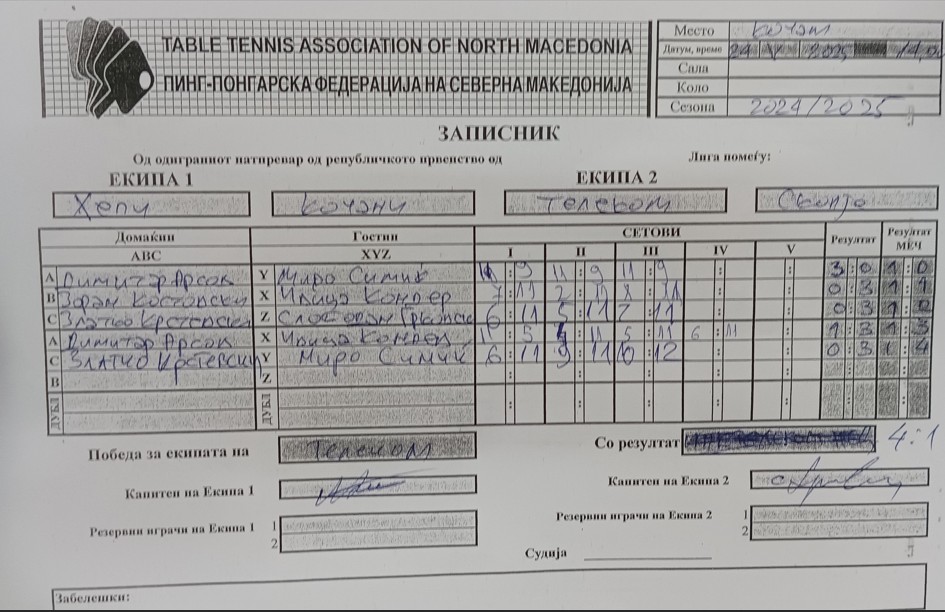 TABLE TENNIS ASSOCIATION OF NORTH MACEDONIA
ПИНГ-ПОНГАРСКА ФЕДЕРАЦИЈА НА СЕВЕРНА МАКЕДОНИЈА
Место Кочани
Датум, време 24 V 2025
Сала
Коло
Сезона 2024/2025
ЗАПИСНИК
Од одиграниот натпревар од републичкото првенство од Лига помеѓу:
ЕКИПА 1 ЕКИПА 2
Хепи Кочани Телеком Скопје
Домаќин Гостин СЕТОВИ Резултат Резултат МЕЧ
ABC XYZ I II III IV V
A Димитар Арсов Y Миро Симиќ 11:9 11:9 11:9 3:0 1:0
B Зоран Костовски X Илица Кондев 7:11 2:11 8:11 0:3 1:1
C Златко Крстевски Z Слободан 6:11 5:11 7:11 0:3 1:2
A Димитар Арсов X Илица Кондев 11:5 :11 5:11 6:11 1:3 1:3
C Златко Крстевски Y Миро Симиќ 6:11 9:11 10:12 0:3 1:4
B Z
ДУБЛ ДУБЛ
Победа за екипата на Телеком Со резултат 4:1
Капитен на Екипа 1 Капитен на Екипа 2
Резервни играчи на Екипа 1 1 Резервни играчи на Екипа 2 1
2 2
Судија
Забелешки: